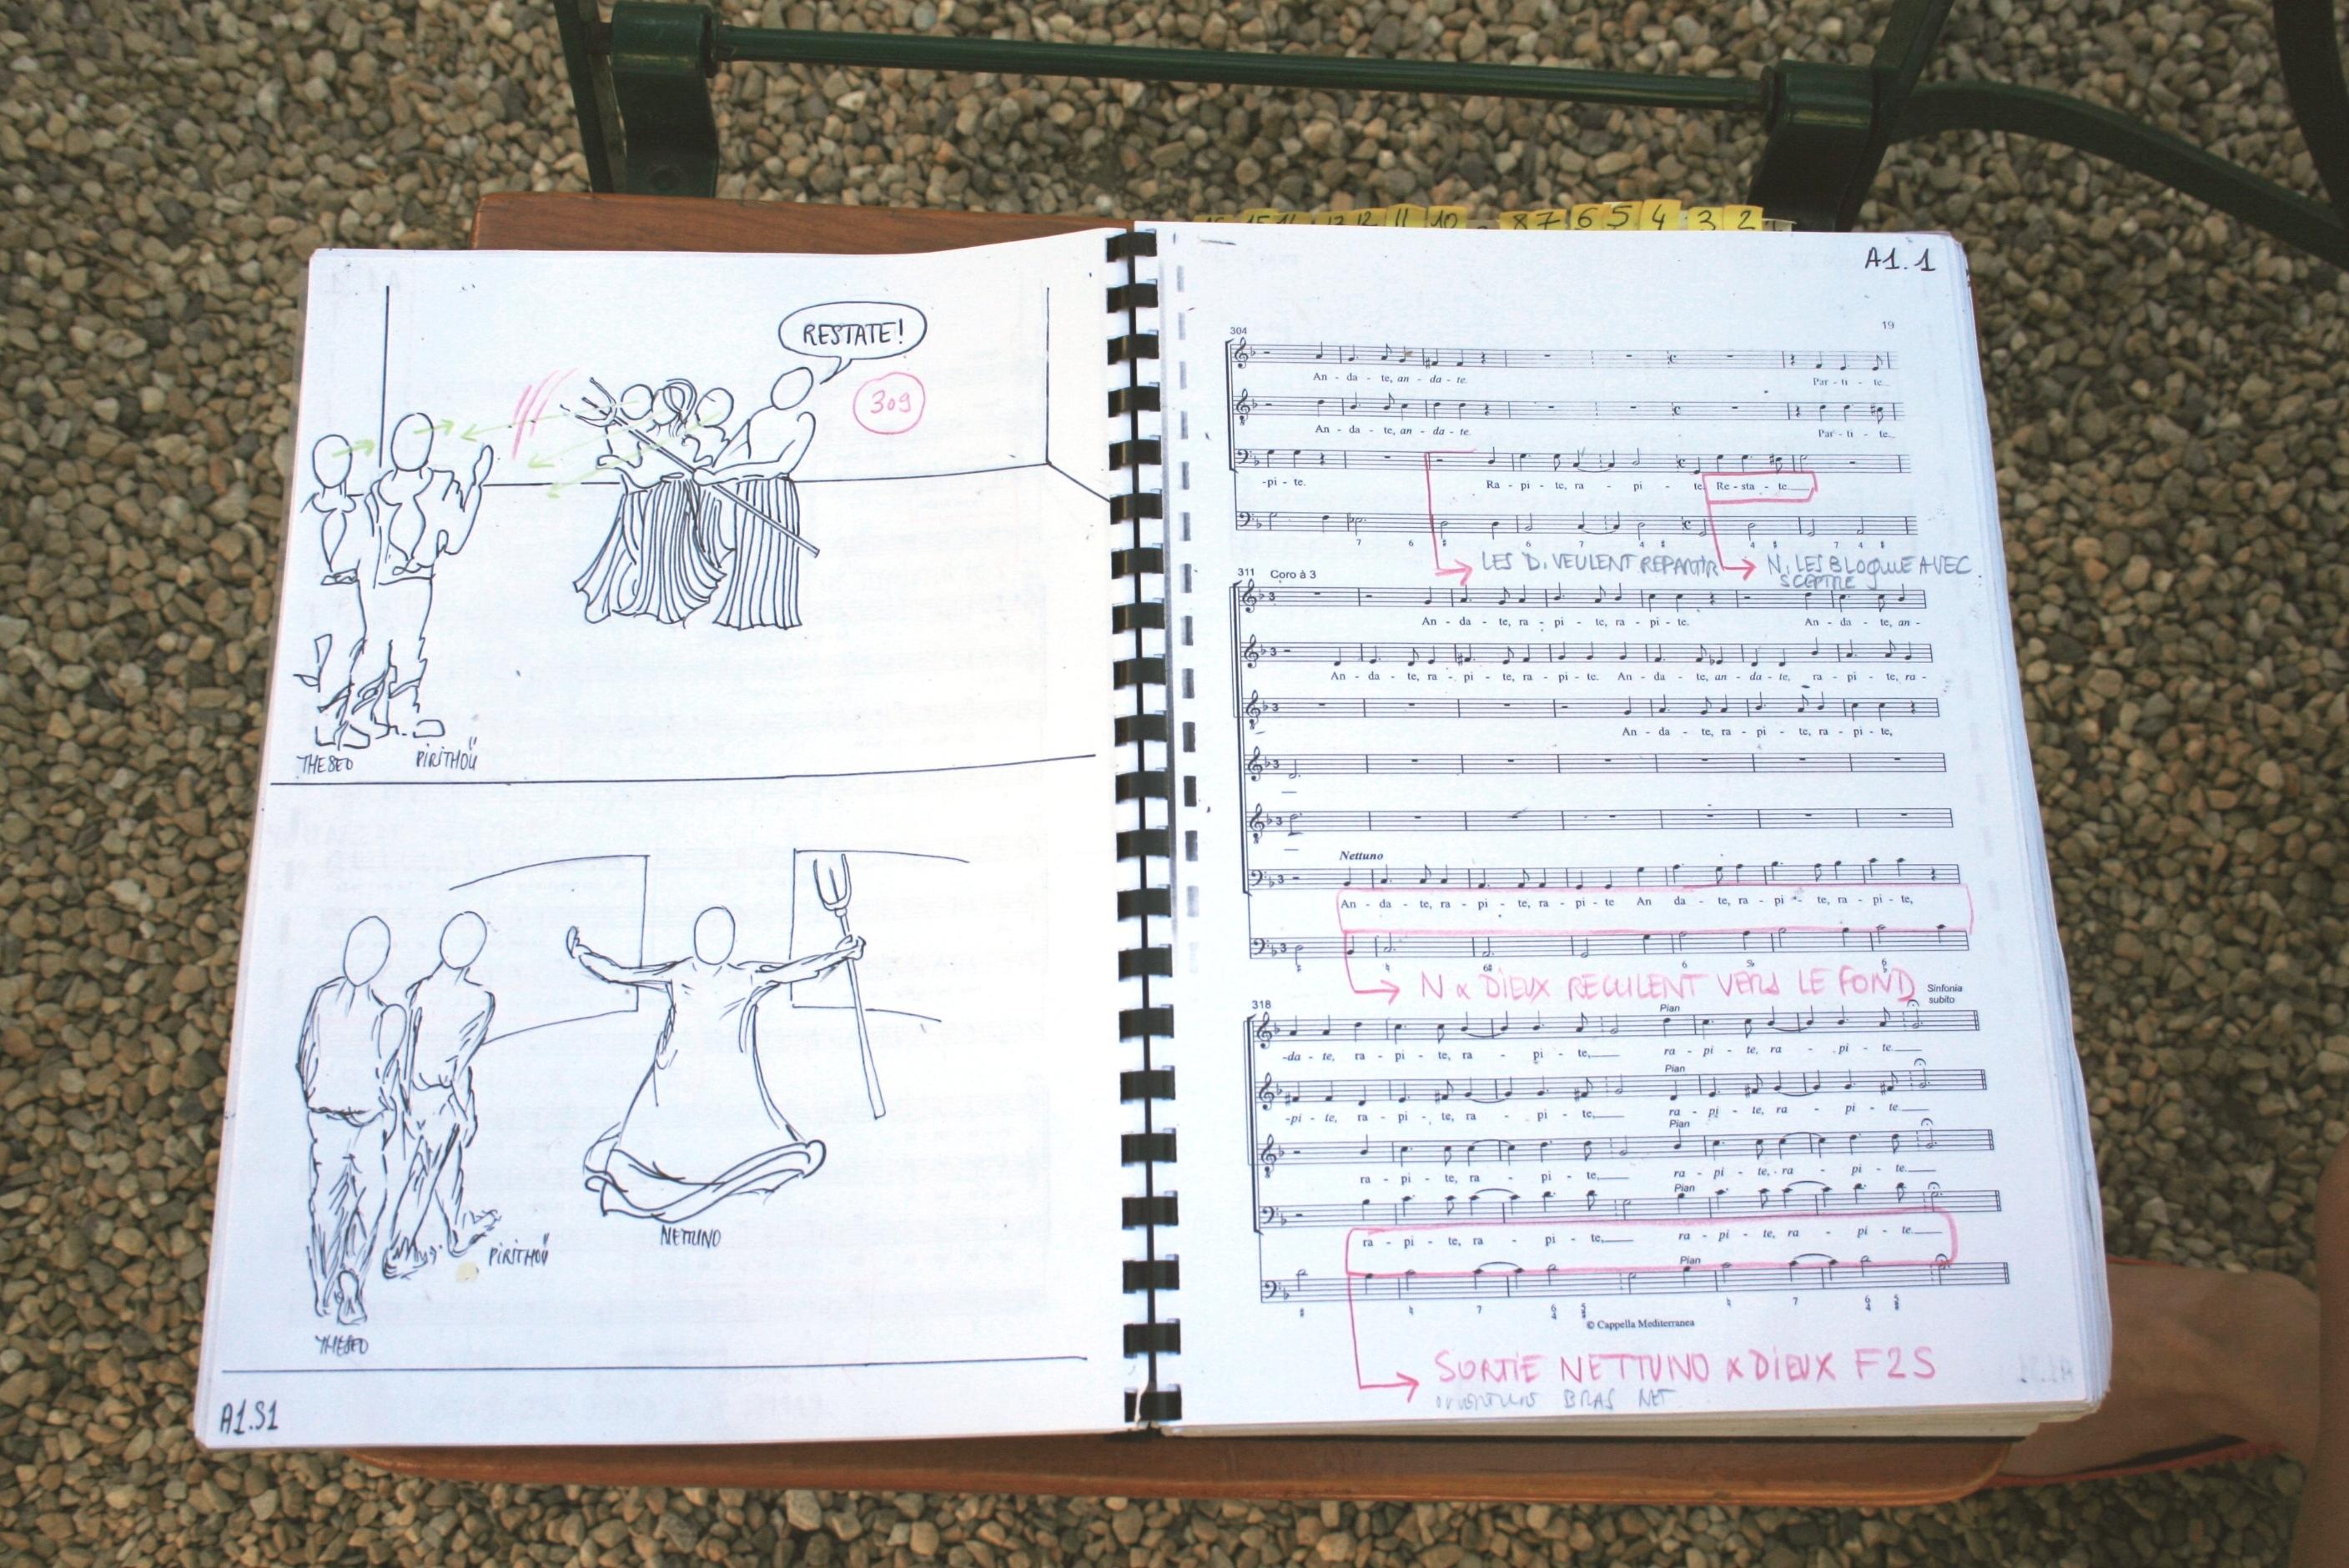 RESTATE!
309
THESEO
PIRITHOÜ
NETTUNO
PIRITHOÜ
THESEO
A1.S1
15 14 13 12 11 10 8 7 6 5 4 3 2
A1.1
19
304
An - da - te, an - da - te. Par - ti - te
An - da - te, an - da - te. Par - ti - te
-pi - te. Ra - pi - te, ra - pi - te. Re - sta - te
7 6 6 7 4 7 4
LES D. VEULENT REPARTIR
N. LES BLOQUE AVEC
SCEPTRE
311 Coro à 3
An - da - te, ra - pi - te, ra - pi - te. An - da - te, an -
An - da - te, ra - pi - te, ra - pi - te. An - da - te, an - da - te, ra - pi - te, ra -
An - da - te, ra - pi - te, ra - pi - te,
Nettuno
An - da - te, ra - pi - te, ra - pi - te An da - te, ra - pi - te, ra - pi - te,
N & DIEUX RECULENT VERS LE FOND
Sinfonia
subito
318
Pian
-da - te, ra - pi - te, ra - pi - te, ra - pi - te, ra - pi - te.
Pian
-pi - te, ra - pi - te, ra - pi - te, ra - pi - te, ra - pi - te.
Pian
ra - pi - te, ra - pi - te, ra - pi - te, ra - pi - te.
Pian
ra - pi - te, ra - pi - te, ra - pi - te, ra - pi - te.
Pian
© Cappella Mediterranea
SORTIE NETTUNO & DIEUX F2S
BRAS NET